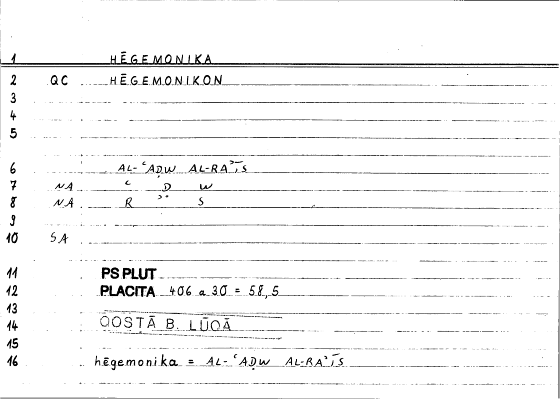 1 HĒGEMONIKA
2 QC HĒGEMONIKON
3
4
5
6 AL-ʿAḌW AL-RAʾĪS
7 NA ʿ Ḍ W
8 NA R ʾˉ S
9
10 SA
11 PS PLUT
12 PLACITA 406 a 30 = 58,5
13
14 QOSṬĀ B. LŪQĀ
15
16 hēgemonika = AL-ʿAḌW AL-RAʾĪS